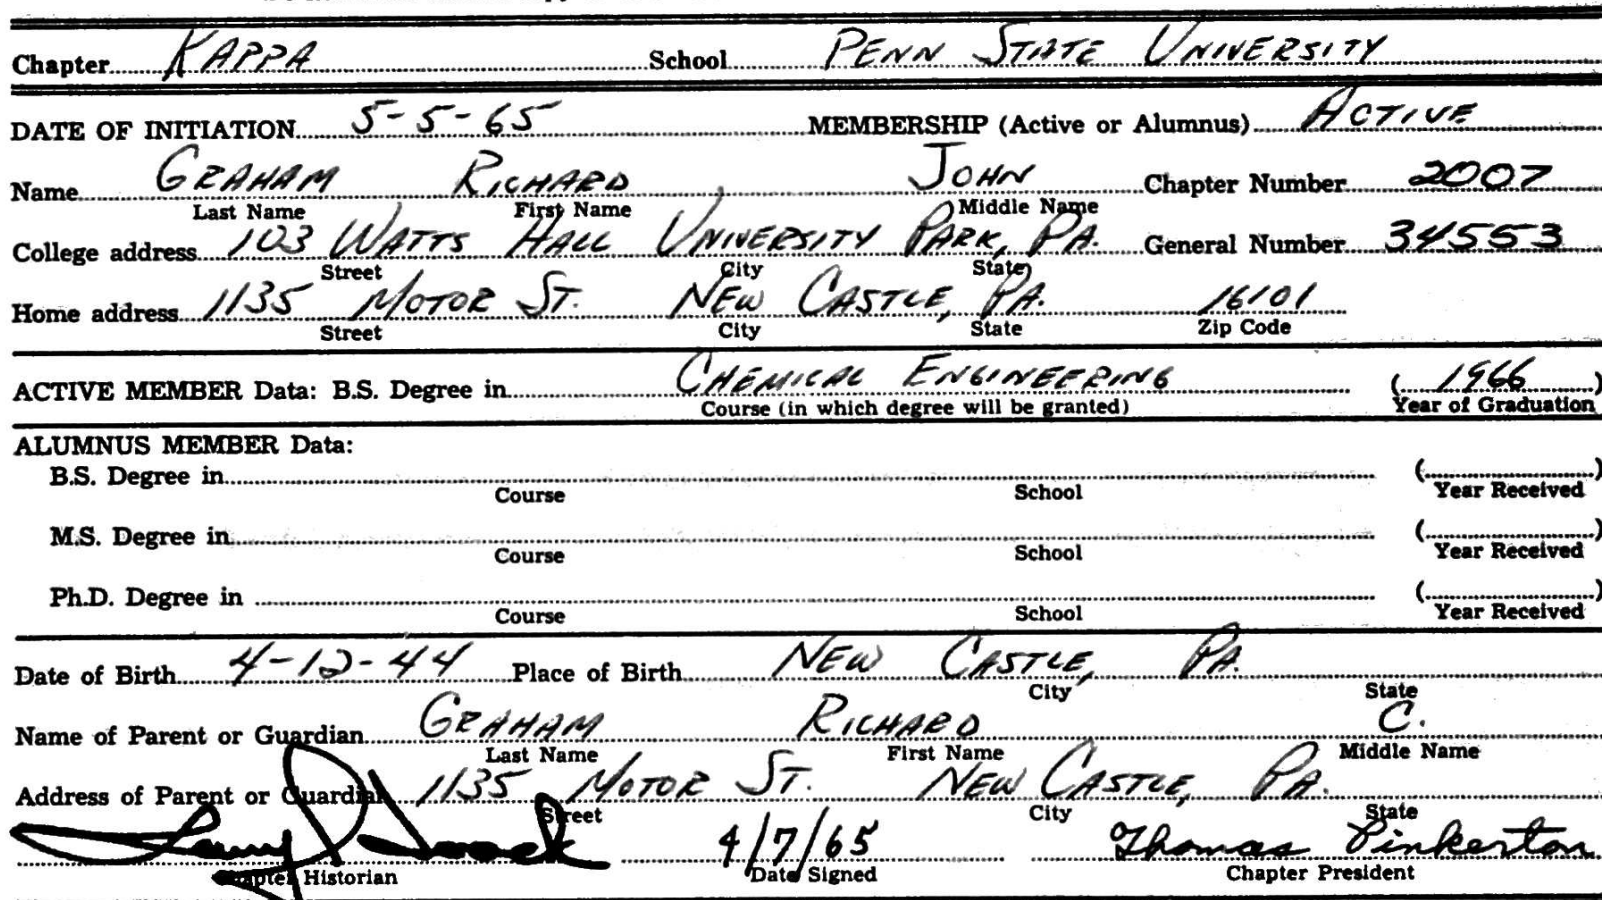 Chapter KAPPA School PENN STATE UNIVERSITY
DATE OF INITIATION 5-5-65 MEMBERSHIP (Active or Alumnus) ACTIVE
Name GRAHAM RICHARD JOHN Chapter Number 2007
Last Name First Name Middle Name
College address 103 WATTS HALL UNIVERSITY PARK, PA. General Number 34553
Street City State
Home address 1135 MOTOR ST. NEW CASTLE, PA. 16101
Street City State Zip Code
ACTIVE MEMBER Data: B.S. Degree in CHEMICAL ENGINEERING (1966)
Course (in which degree will be granted) Year of Graduation
ALUMNUS MEMBER Data:
B.S. Degree in ( )
Course School Year Received
M.S. Degree in ( )
Course School Year Received
Ph.D. Degree in ( )
Course School Year Received
Date of Birth 4-12-44 Place of Birth NEW CASTLE, PA.
City State
Name of Parent or Guardian GRAHAM RICHARD C.
Last Name First Name Middle Name
Address of Parent or Guardian 1135 MOTOR ST. NEW CASTLE, PA.
Street City State
4/7/65 Thomas Pinkerton
Chapter Historian Date Signed Chapter President